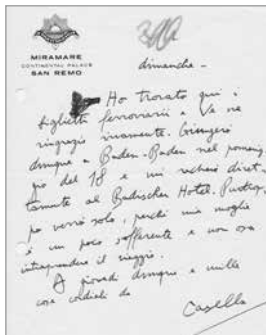 MIRAMARE
CONTINENTAL PALACE
SAN REMO
dimanche -
Ho trovato qui i
biglietti ferroviarii e Ve ne
ringrazio vivamente. Giungerò
dunque a Baden-Baden nel pomerig-
gio del 18 e mi recherò diret-
tamente al Badischer Hotel. Purtrop-
po verrò solo, perché mia moglie
è un poco sofferente e non osa
intraprendere il viaggio.
A giovedì dunque e mille
cose cordiali da
Casella